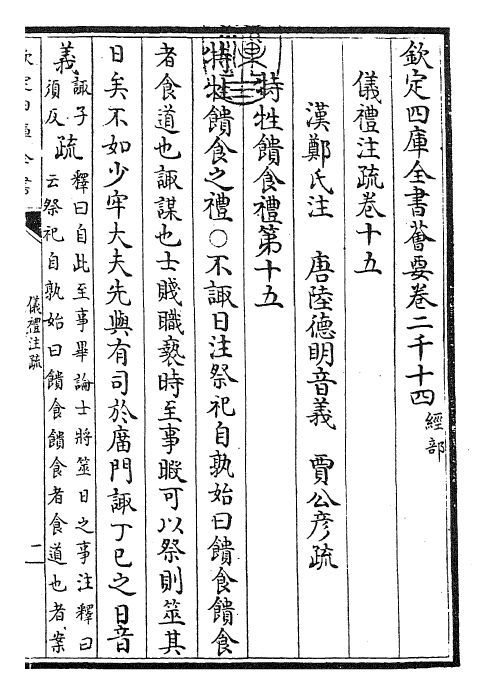 欽定四庫全書薈要卷二千十四 經部
儀禮注疏卷十五
漢鄭氏注 唐陸德明音義 賈公彦疏
特牲饋食禮第十五
特牲饋食之禮○不諏日注祭祀自孰始曰饋食饋食
者食道也諏謀也士賤職䙝時至事暇可以祭則筮其
日矣不如少牢大夫先與有司於廟門諏丁巳之日音
義諏子須反疏釋曰自此至事畢論士將筮日之事注釋曰
云祭祀自孰始曰饋食饋食者食道也者案
儀禮注疏